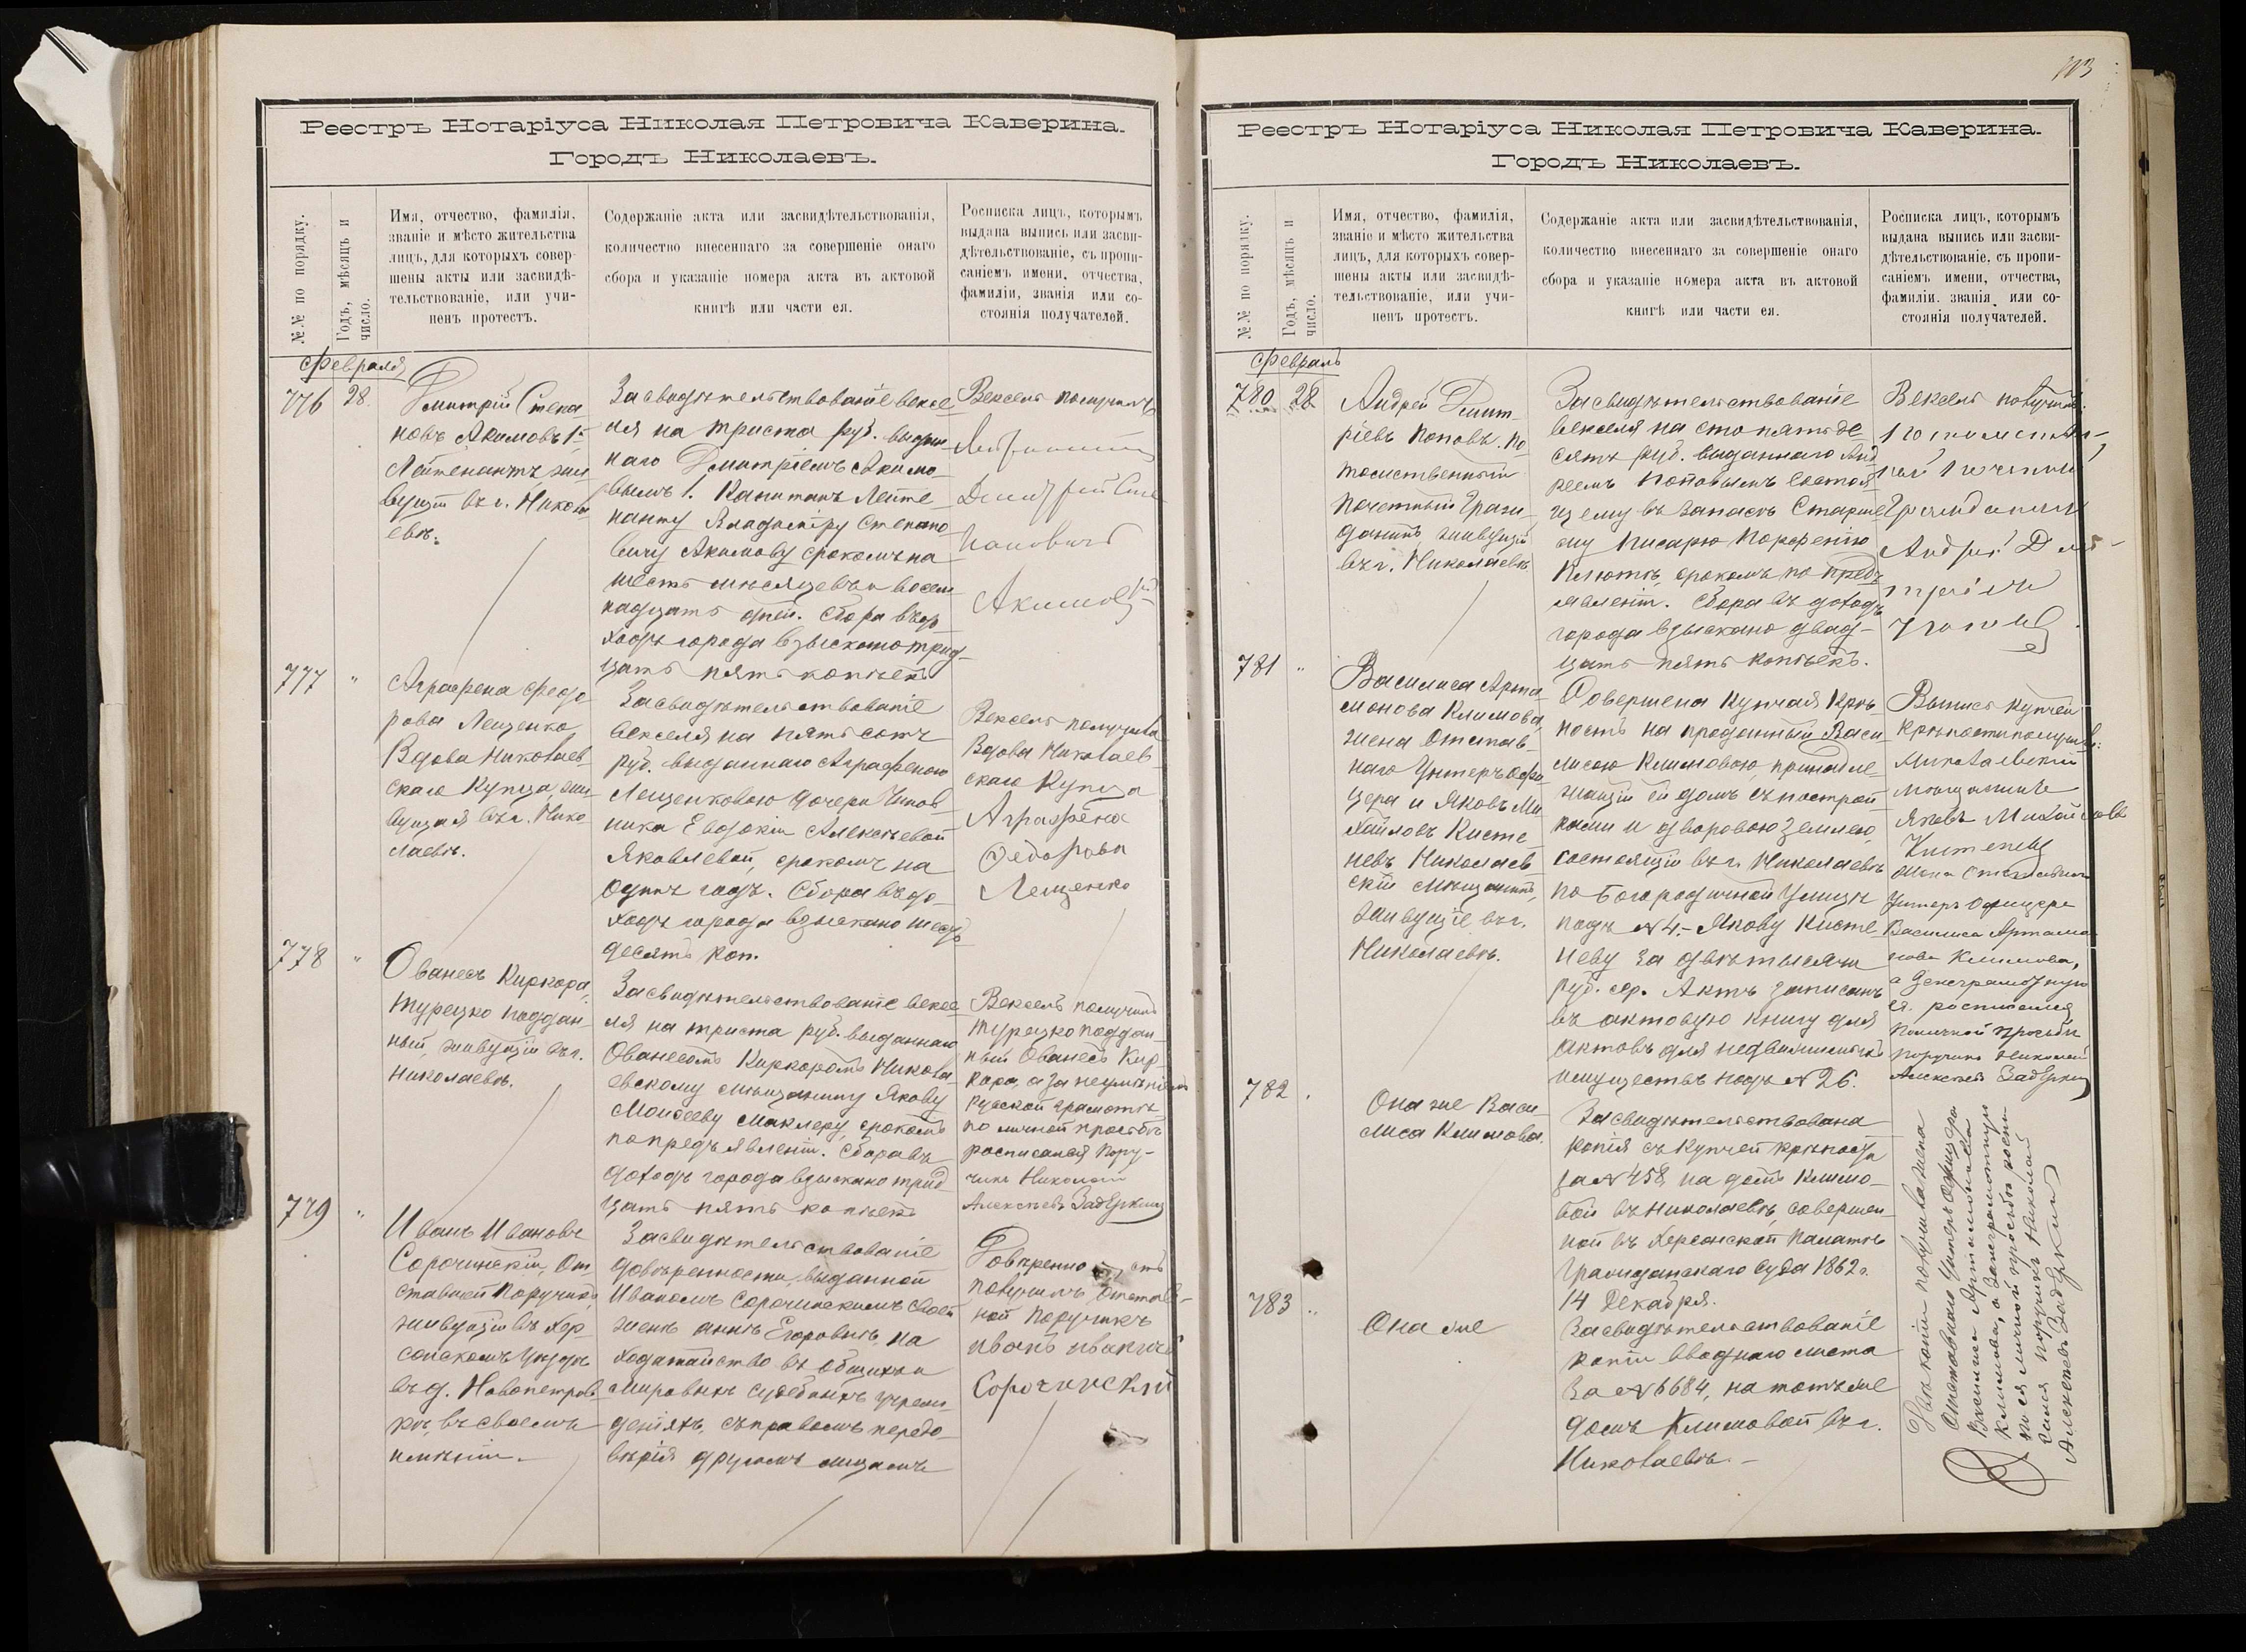 Реестръ Нотаріуса Николая Петровича Каверина.
Городъ Николаевъ.
№№ по порядку.
Годъ, мѣсяцъ и
число.
Имя, отчество, фамилія,
званіе и мѣсто жительства
лицъ, для которыхъ совер-
шены акты или засвидѣ-
тельствованіе, или учи-
ненъ протестъ.
Содержаніе акта или засвидѣтельствованія,
количество внесеннаго за совершеніе онаго
сбора и указаніе номера акта въ актовой
книгѣ или части ея.
Росписка лицъ, которымъ
выдана выпись или засви-
дѣтельствованіе, съ пропи-
саніемъ имени, отчества,
фамиліи, званія или со-
стоянія получателей.
Февраля
776
28.
Дмитрій Степа
новъ Акимовъ 1й
Лейтенантъ жи
вущій въ г. Никола
евѣ.
Засвидѣтельствованіе вексе
ля на триста руб. выдан
наго Дмитріемъ Акимо
вымъ 1. Капитанъ Лейте
нанту Владиміру Степано
вичу Акимову срокомъ на
шесть мѣсяцевъ и восем
надцать дней. Сбора въ до
ходъ города взыскано трид-
цать пять копѣекъ
Вексель получилъ
Лейтенантъ
Дмитрій Сте
пановичъ
Акимовъ 1й
777
"
Аграфена Федо
рова Лещенко
Вдова Николаев
скаго Купца, жи
вущая въ г. Нико
лаевѣ.
Засвидѣтельствованіе
векселя на пятьсотъ
руб. выданнаго Аграфеною
Лещенковою дочери Чинов
ника Евдокіи Алексѣевой
Яковлевой, срокомъ на
одинъ годъ. Сбора въ до-
ходъ города взыскано шесть
десятъ коп.
Вексель получила
Вдова Николаев
скаго Купца
Аграфена
Федорова
Лещенко
778
"
Ованесъ Киркоръ,
Турецко поддан-
ный, живущій въ г.
Николаевѣ.
Засвидѣтельствованіе вексе
ля на триста руб. выданнаго
Ованесомъ Киркоромъ Никола
евскому мѣщанину Якову
Моисееву Маклеру, срокомъ
по предъявленіи. Сбора въ
доходъ города взыскано трид
цать пять копѣекъ
Вексель получилъ
Турецко поддан
ный Ованесъ Кир
коръ, а за неумѣніемъ
Русской грамоты
по личной просьбѣ
росписался Пору-
чикъ Николай
Алексѣевъ Задёркинъ
779
"
Иванъ Ивановъ
Сорочинскій, От
ставной Поручикъ,
живущій въ Хер
сонскомъ Уѣздѣ
въ д. Новопетров
кѣ, въ своемъ
имѣніи.
Засвидѣтельствованіе
довѣренности, выданной
Иваномъ Сорочинскимъ своей
женѣ Аннѣ Егоровнѣ, на
ходатайство въ общихъ и
мировыхъ судебныхъ учреж
деніяхъ, съ правомъ передо
вѣрія другимъ лицамъ
получилъ Отстав-
ной Поручикъ
Иванъ Ивановъ
Сорочинскій
Реестръ Нотаріуса Николая Петровича Каверина.
Городъ Николаевъ.
№№ по порядку.
Годъ, мѣсяцъ и
число.
Имя, отчество, фамилія,
званіе и мѣсто жительства
лицъ, для которыхъ совер-
шены акты или засвидѣ-
тельствованіе, или учи-
ненъ протестъ.
Содержаніе акта или засвидѣтельствованія,
количество внесеннаго за совершеніе онаго
сбора и указаніе номера акта въ актовой
книгѣ или части ея.
Росписка лицъ, которымъ
выдана выпись или засви-
дѣтельствованіе, съ пропи-
саніемъ имени, отчества,
фамиліи. званія или со-
стоянія получателей.
Февраль
780
28
Андрей Дмит
ріевъ Поповъ. По
томственный
почетный Граж
данинъ живущій
въ г. Николаевѣ
Засвидѣтельствованіе
векселя на сто пятьде
сятъ руб. выданнаго Анд
реемъ Поповымъ Состоя
щему въ запасѣ Старше
му Писарю Порфенію
срокомъ по предъ
явленіи. Сбора въ доходъ
города взыскано двад-
цать пять копѣекъ.
Вексель получилъ
Потомствен-
ный Почетный
Гражданинъ
Андрей Дми-
тріевъ
Поповъ
781
"
Василиса Арта
монова Климова,
жена Отстав-
наго Унтеръ Офи
цера и Яковъ Ми
хайловъ Кисте
невъ Николаев
скій Мѣщанинъ,
живущіе въ г.
Николаевѣ.
Совершена Купчая Крѣ-
пость на проданный Васи
лисою Климовою, принадле
жащій ей домъ съ построй
ками и дворовою землею
состоящій въ г. Николаевѣ
по Богородичной Улицѣ
подъ № 4. - Якову Кисте
неву за двѣ тысячи
руб. сер. Актъ записанъ
въ актовую книгу для
актовъ для недвижимыхъ
имуществъ подъ № 26.
Выпись купчей
крѣпости получили:
Николаевскій
мѣщанинъ
Яковъ Михайловъ
Кистеневъ
Жена Отставнаго
Унтеръ Офицера
Василиса Артамо
нова Климова,
а за неграмотную
ея росписался
по личной просьбѣ
поручикъ Николай
Алексѣевъ Задёркинъ
782
Она же Васи-
лиса Климова.
Засвидѣтельствована
копія съ купчей крѣпости
за № 458, на домъ Климо-
вой въ Николаевѣ, совершен
ной въ Херсонской Палатѣ
Гражданскаго Суда 1862 г.
14 Декабря.
783
"
Она же
Засвидѣтельствованіе
копіи вводнаго листа
за № 6684, на тотъ же
домъ Климовой въ г.
Николаевѣ. -
Двѣ копіи получила жена
Отставнаго Унтеръ Офицера
Василиса Артамонова
Климова, а за неграмотную
по ея личной просьбѣ роспи
сался поручикъ Николай
Алексѣевъ Задёркинъ